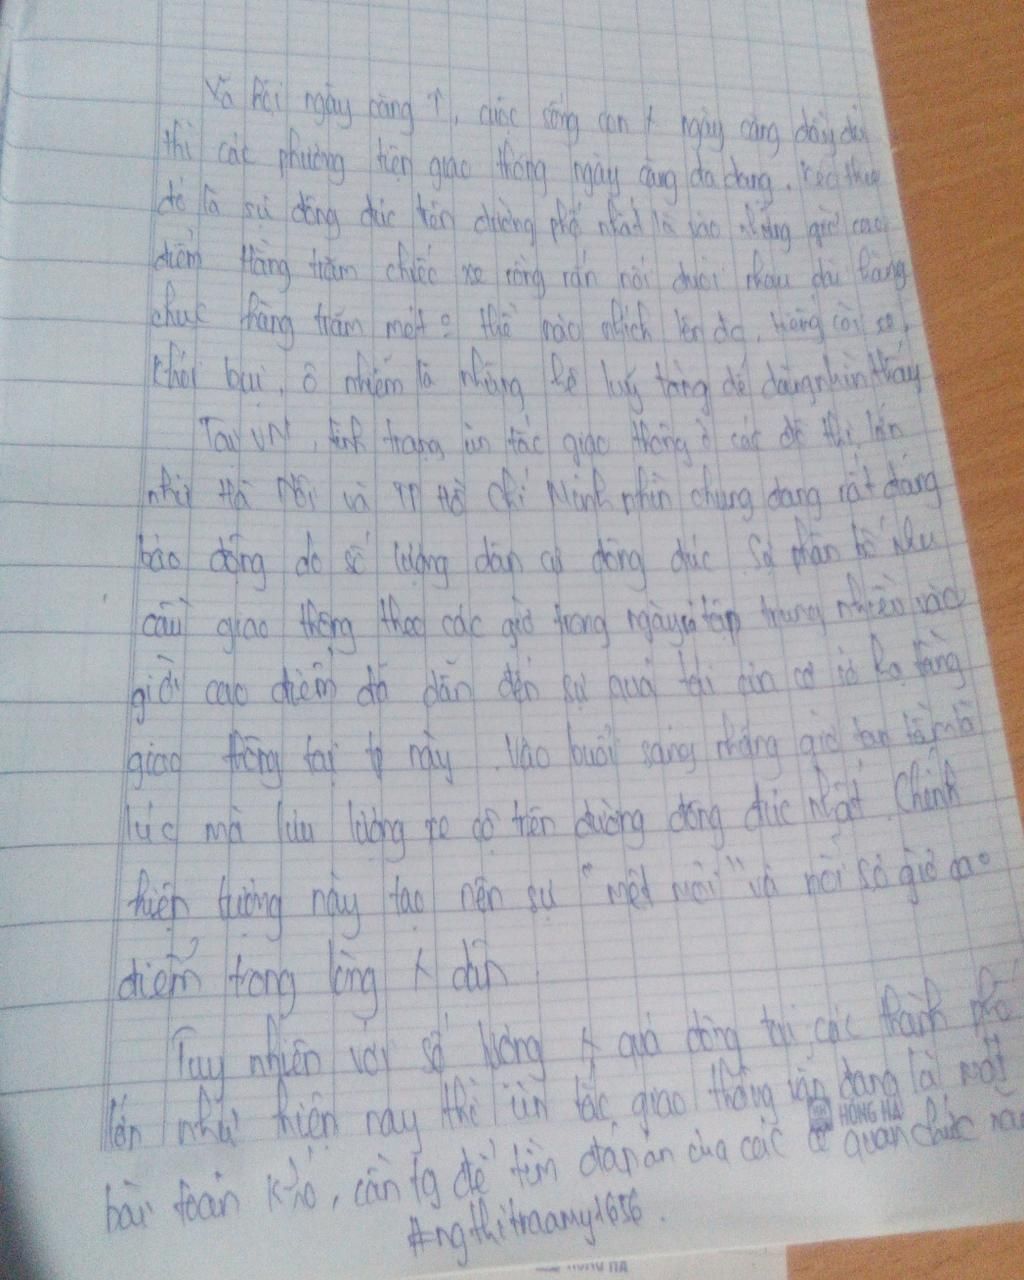 Xã hội ngày càng ↑, cuộc sống con ƛ ngày càng đầy đủ
thì các phương tiện giao thông ngày càng đa dạng. Kéo theo
đó là sự đông đúc trên đường phố nhất là vào những giờ cao
điểm Hàng trăm chiếc xe rồng rắn nối đuôi nhau dài hàng
chục hàng trăm mét thể nào nhích lên đc, tiếng còi xe,
khói bụi, ô nhiễm là những hệ luỵ dễ dàng nhìn thấy
Tại VN, tình trạng ùn tắc giao thông ở các đô thị lớn
như Hà Nội và TP Hồ Chí Minh nhìn chung đang rất đáng
báo động do số lượng dân cư đông đúc Sự phân bố nhu
cầu giao thông theo các giờ trong ngày tập trung nhiều vào
giờ cao điểm đã dẫn đến sự quá tải của cơ sở hạ tầng
giao thông tại này. Vào buổi sáng những giờ tan tầm là
lúc mà lưu lượng xe cộ trên đường đông đúc nhất. Chính
hiện tượng này tạo nên sự "mệt mỏi" và nỗi sợ giờ cao
điểm trong lòng ƛ dân
Tuy nhiên với số lượng ƛ quá đông tại các thành phố
lớn như hiện nay thì ùn tắc giao thông vẫn đang là một
bài toán khó, cần tg để tìm đáp án của các cơ quan chức năng
#ngthitraamy1656.
HONG HA